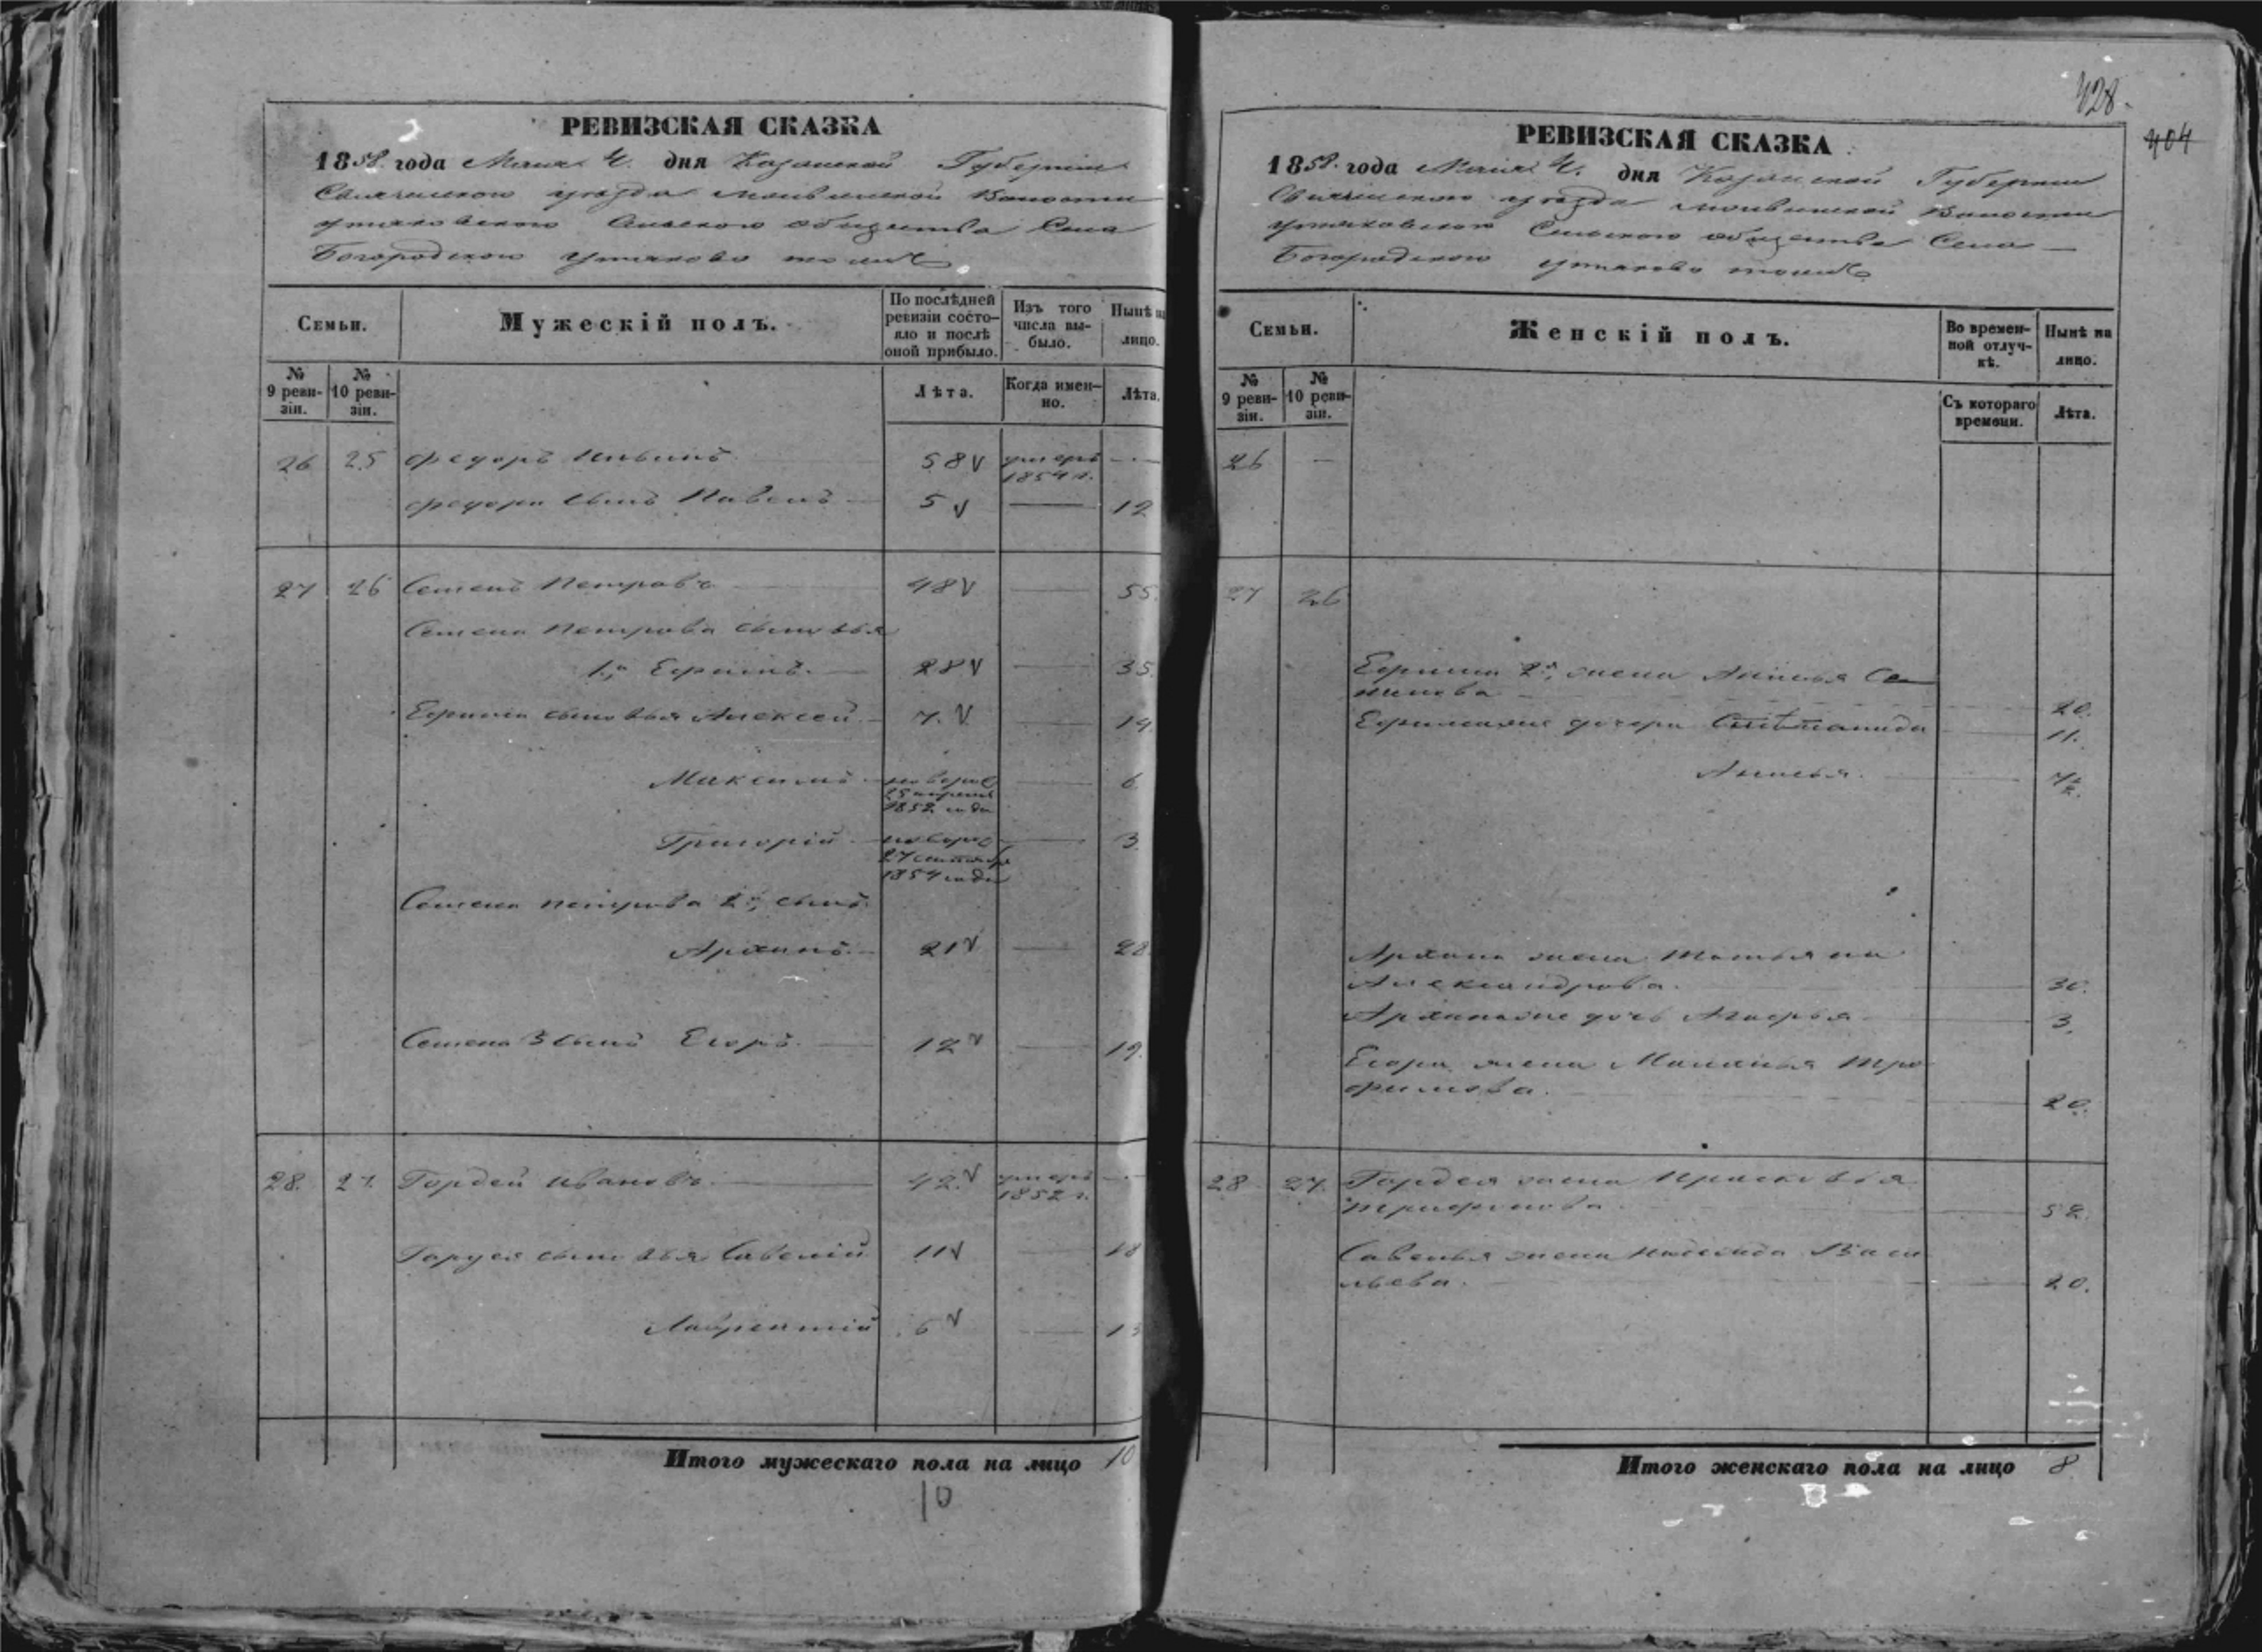 428.
404
РЕВИЗСКАЯ СКАЗКА
1858 года Маія 4. дня Казанской Губерніи
Свіяжскаго уезда Волости
Сельскаго общества Села
Богородскаго тожъ
Семьи.
Мужескій полъ.
По послѣдней ревизіи состояло и послѣ оной прибыло.
Изъ того числа выбыло.
Нынѣ на лицо.
№ 9 ревизіи.
№ 10 ревизіи.
Лѣта.
Когда именно.
Лѣта.
26 25 Федоръ Ильинъ 58 умеръ 1854 г. —
Федора сынъ Павелъ 5 — 12
27 26 Семенъ Петровъ 48 — 55.
Семена Петрова сыновья
1й Ефимъ. 28 — 35.
Ефима сыновья Алексей 7. — 14.
Максимъ новорож 25 апреля 1852 года — 6.
Григорій новорож 27 сентября 1854 года — 3.
Семена Петрова 2й сынъ
Архипъ. 21 — 28.
Семена 3 сынъ Егоръ. 12 — 19.
28. 27. Гордей Ивановъ 42. умеръ 1852 г. —
Гордея сыновья Савелій 11 — 18
Лаврентій 6 — 13
Итого мужескаго пола на лицо 10
10
РЕВИЗСКАЯ СКАЗКА
1858 года Маія 4. дня Казанской Губерніи
Свіяжскаго уезда Волости
Сельскаго общества Села
Богородскаго тожъ
Семьи.
Женскій полъ.
Во временной отлучкѣ.
Нынѣ на лицо.
№ 9 ревизіи.
№ 10 ревизіи.
Съ котораго времени.
Лѣта.
26 —
27 26
Ефима 2я жена
20.
Ефимовые дочери Степанида 11.
Архипа жена Татьяна
Александрова. 30.
дочь 3.
Егора жена Маланья Тро
фимова. 20.
28 27. Гордея жена Прасковья
Трифонова 52.
Савелья жена Васи
льева. 20.
Итого женскаго пола на лицо 8